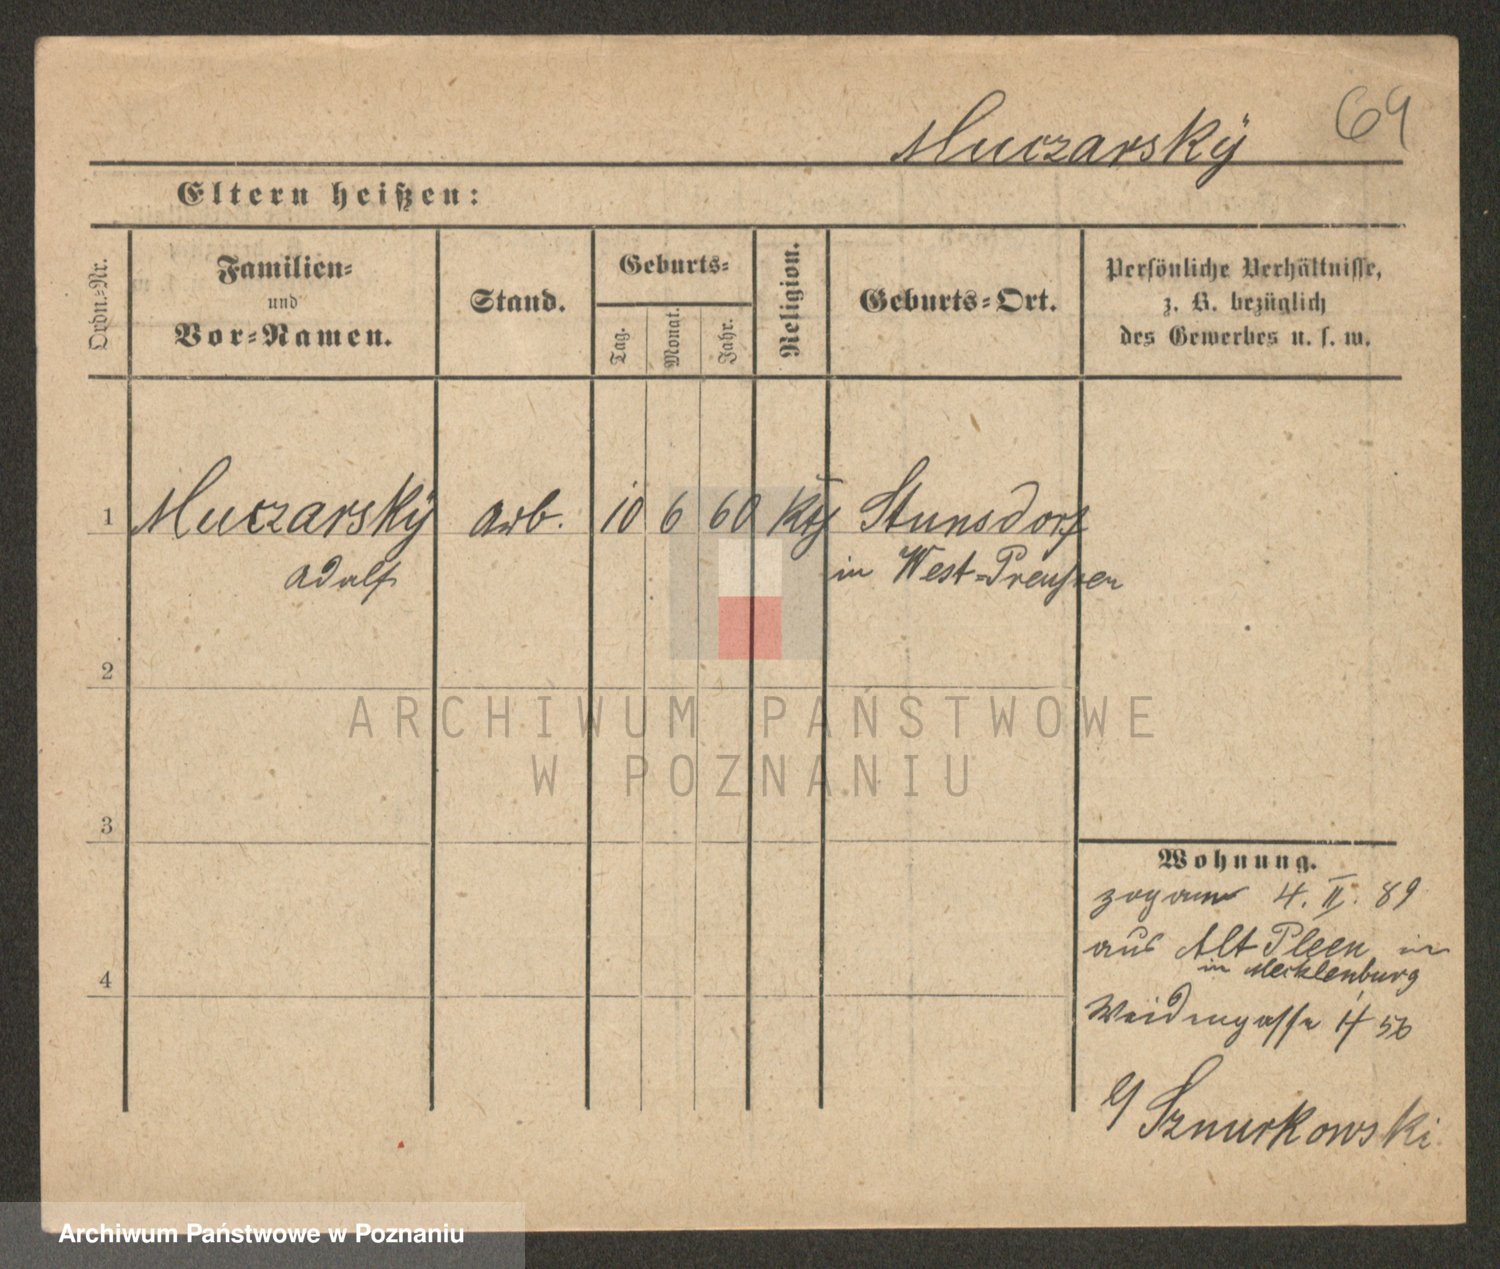 Muczarskÿ 69
Eltern heißen:
Ordn.-Nr.
Familien-
und
Vor-Namen.
Stand.
Geburts-
Tag.
Monat.
Jahr.
Religion.
Geburts-Ort.
Persönliche Verhältnisse,
z. B. bezüglich
des Gewerbes u. s. w.
1 Muczarskÿ arb. 10 6 60 Stunsdorf
Adolf in West-Preußen
2
ARCHIWUM PAŃSTWOWE
W POZNANIU
3
4
Wohnung.
4. II. 89
aus Alt Pleen in
in Mecklenburg
Weidengasse
Sznurkowski
Archiwum Państwowe w Poznaniu